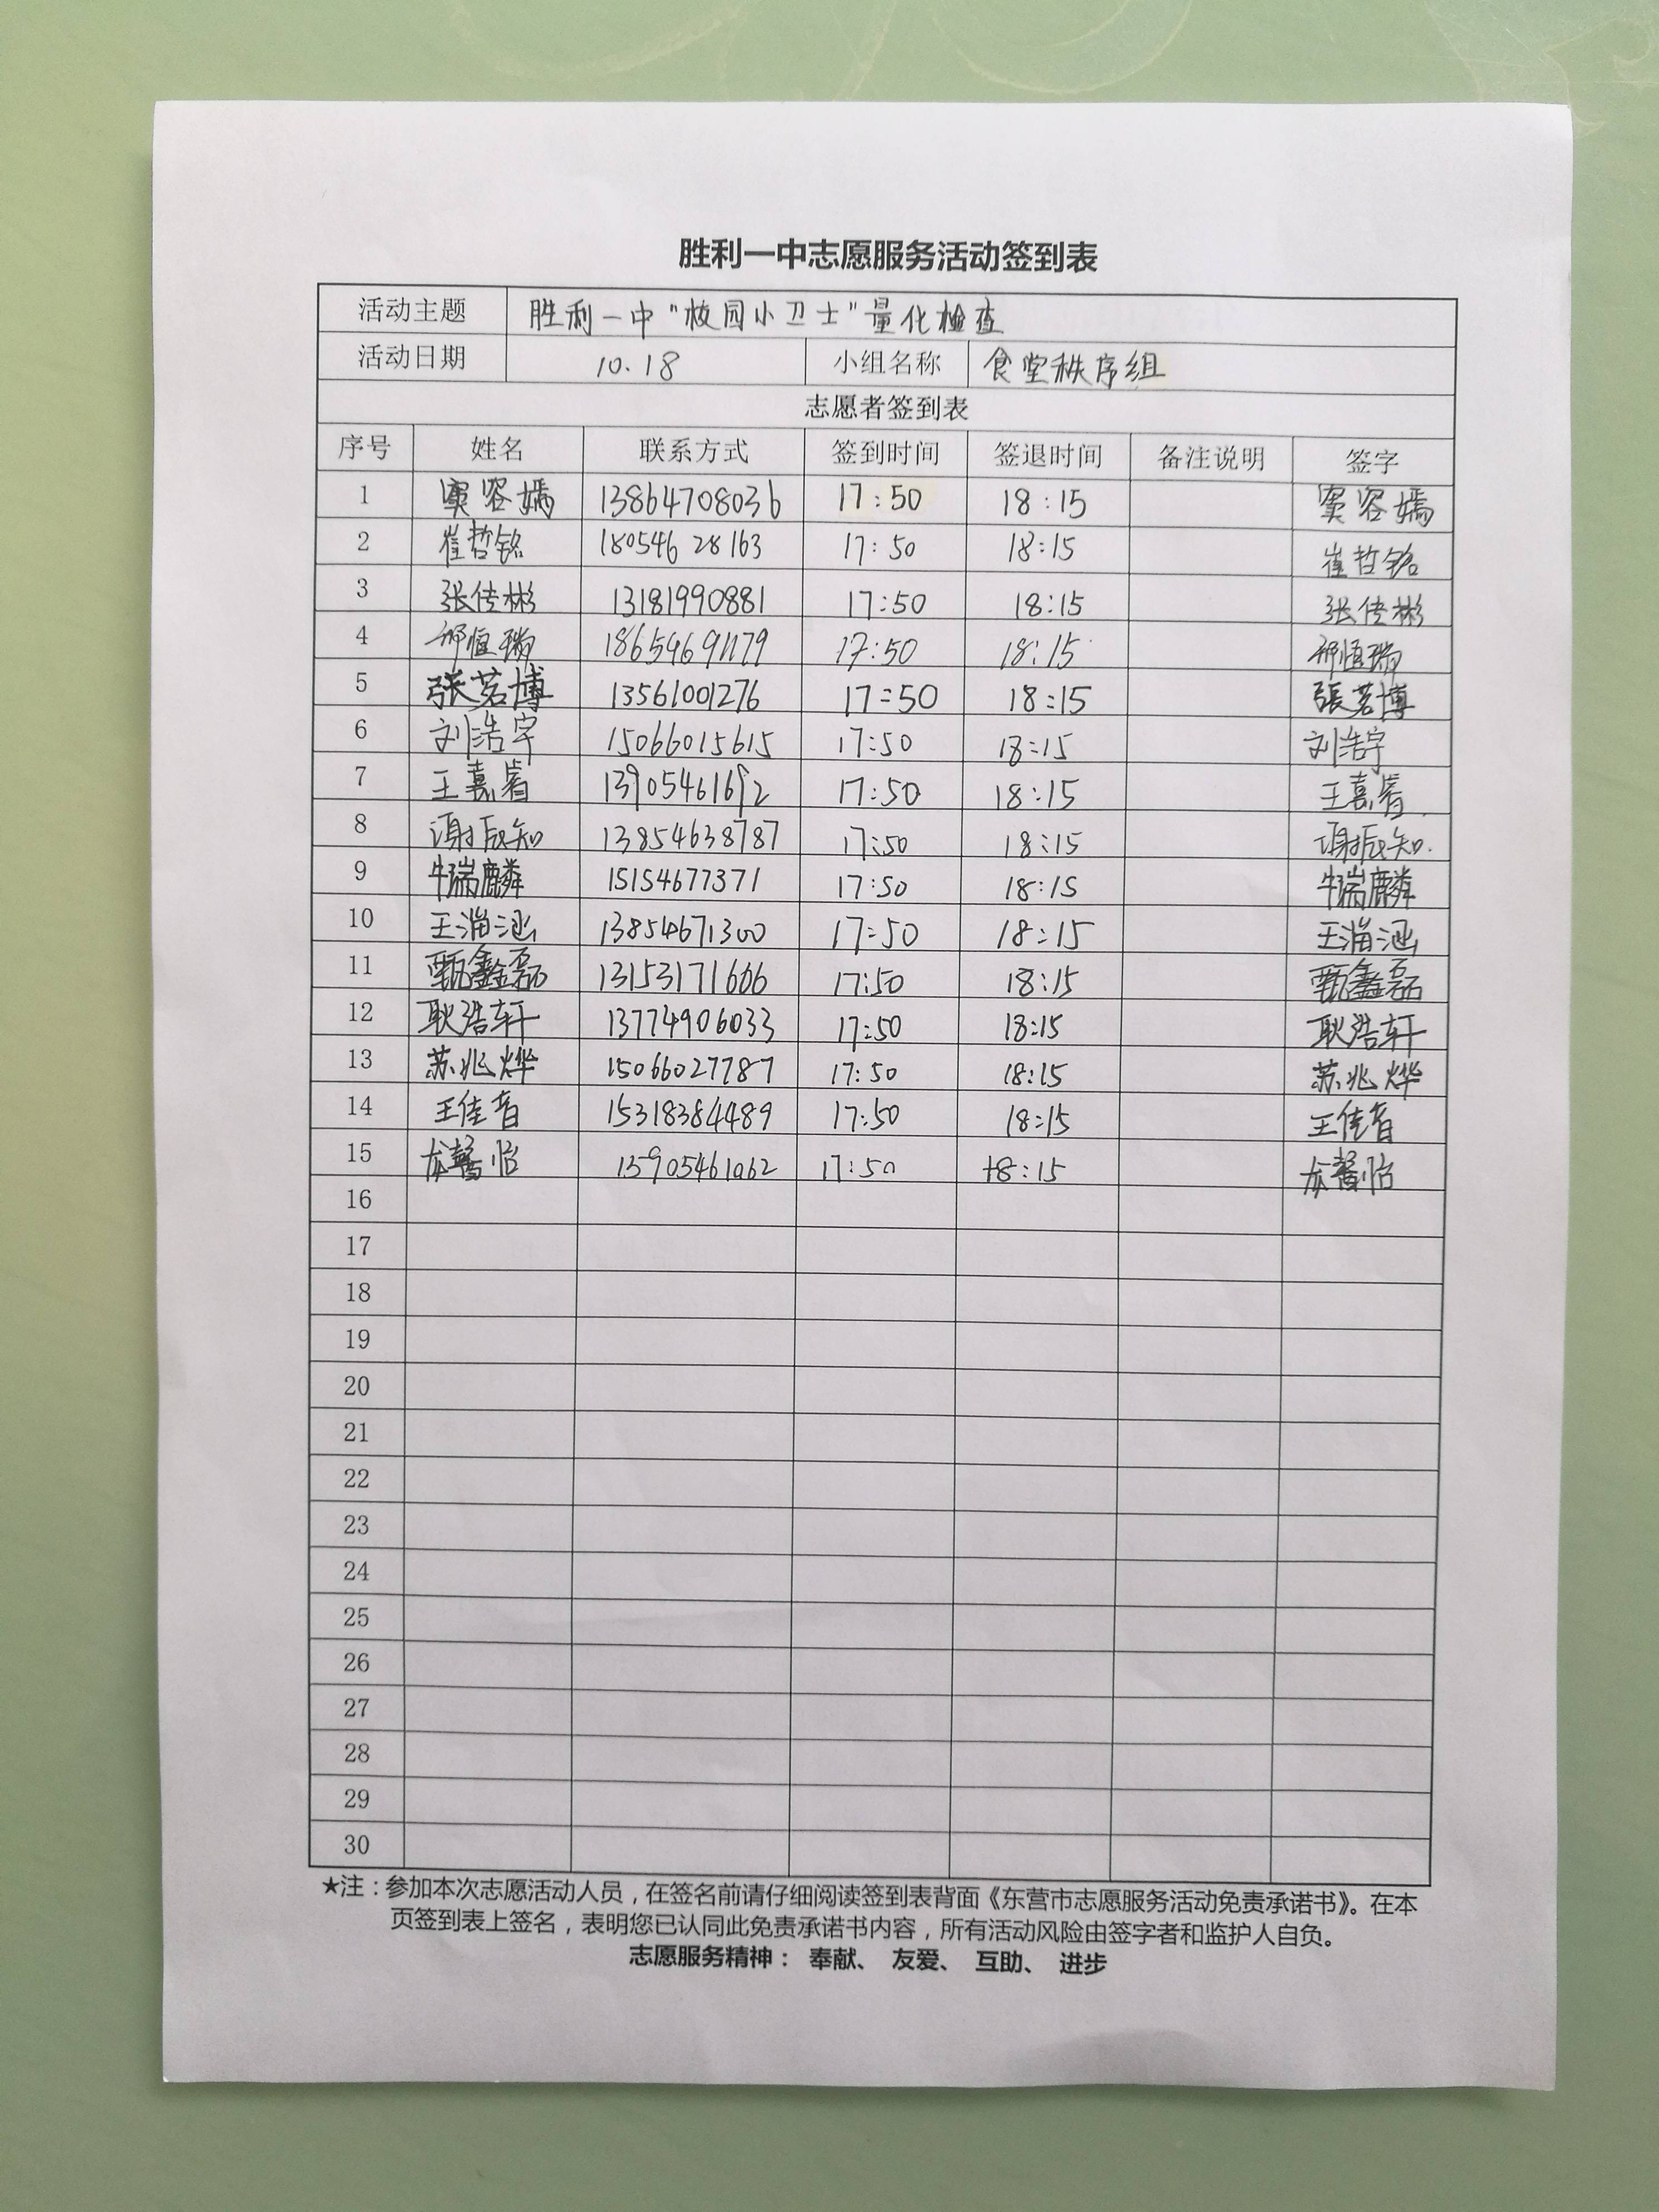 胜利一中志愿服务活动签到表
活动主题 胜利一中"校园小卫士"量化检查
活动日期 10.18 小组名称 食堂秩序组
志愿者签到表
序号 姓名 联系方式 签到时间 签退时间 备注说明 签字
1 窦容嫣 13864708036 17:50 18:15 窦容嫣
2 崔哲铭 18054628163 17:50 18:15 崔哲铭
3 张传彬 13181990881 17:50 18:15 张传彬
4 邢恒瑞 17:50 18:15 邢恒瑞
5 張茗博 13561001276 17:50 18:15 張茗博
6 刘浩宇 15066015615 17:50 18:15 刘浩宇
7 王嘉睿 13905461692 17:50 18:15 王嘉睿
8 谢辰知 13854638787 17:50 18:15 谢辰知
9 牛瑞麟 15154677371 17:50 18:15 牛瑞麟
10 王淄涵 13854671300 17:50 18:15 王淄涵
11 甄鑫磊 13153171606 17:50 18:15 甄鑫磊
12 耿浩轩 13774906033 17:50 18:15 耿浩轩
13 苏兆烨 15066027787 17:50 18:15 苏兆烨
14 王佳音 15318384489 17:50 18:15 王佳音
15 馨怡 13905461062 17:50 18:15 馨怡
16
17
18
19
20
21
22
23
24
25
26
27
28
29
30
★注：参加本次志愿活动人员，在签名前请仔细阅读签到表背面《东营市志愿服务活动免责承诺书》。在本
页签到表上签名，表明您已认同此免责承诺书内容，所有活动风险由签字者和监护人自负。
志愿服务精神： 奉献、 友爱、 互助、 进步